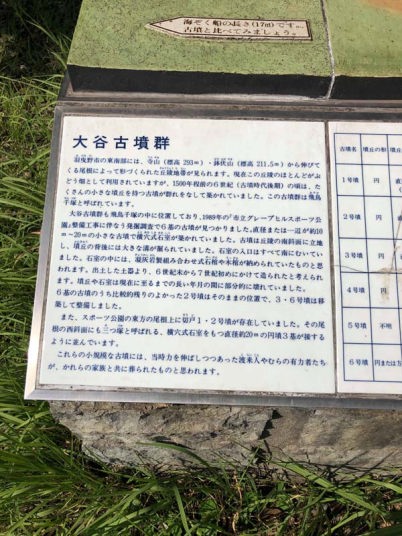 海ぞく船の長さ(17m)です。
古墳と比べてみましょう。
大谷古墳群
羽曳野市の東南部には、寺山（標高 293m）・鉢伏山（標高 211.5m）から伸びて
くる尾根によって形づくられた丘陵地帯が見られます。現在この丘陵のほとんどがぶ
どう畑として利用されていますが、1500年程前の6世紀（古墳時代後期）の頃は、た
くさんの小さな墳丘を持つ古墳が群れをなして築かれていました。この古墳群は飛鳥
千塚と呼ばれています。
大谷古墳群も飛鳥千塚の中に位置しており、1989年の「市立グレープヒルスポーツ公
園」整備工事に伴なう発掘調査で6基の古墳が見つかりました。直径または一辺が約10
m～20mの小さな古墳で横穴式石室が築かれていました。古墳は丘陵の南斜面に立地
し、墳丘の背後には大きな溝が掘られていました。石室の入口はすべて南にむいてい
ました。石室の中には、凝灰岩製組み合わせ式石棺や木棺が納められていたものと思
われます。出土した土器より、6世紀末から7世紀初めにかけて造られたと考えられ
ます。墳丘や石室は現在に至るまでの長い年月の間に部分的に壊れていました。
6基の古墳のうち比較的残りのよかった2号墳はそのままの位置で、3・6号墳は移
築して整備しました。
また、スポーツ公園の東方の尾根上に切戸1・2号墳が存在していました。その尾
根の西斜面にも三つ塚と呼ばれる、横穴式石室をもつ直径約20mの円墳3基が接する
ように並んでいます。
これらの小規模な古墳には、当時力を伸ばしつつあった渡来人やむらの有力者たち
が、かれらの家族と共に葬られたものと思われます。
古墳名 墳丘の形
1号墳 円
2号墳 円
3号墳 円
4号墳 円
5号墳 不明
6号墳 円または方